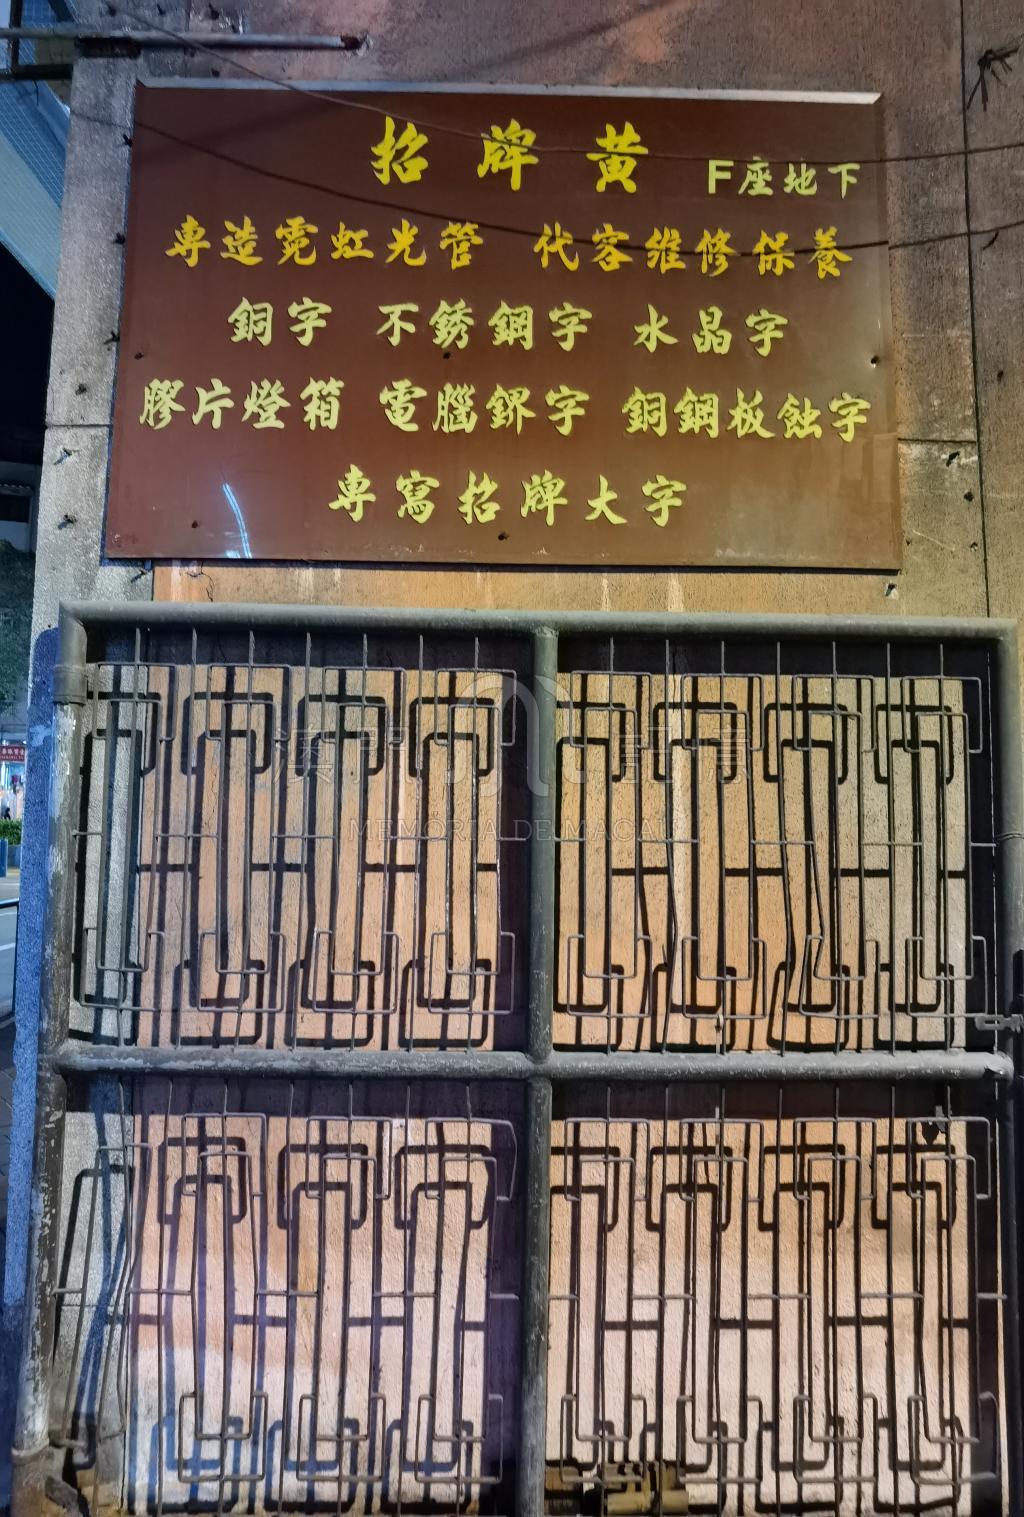 招牌黃 F座地下
專造霓虹光管 代客維修保養
銅字 不銹鋼字 水晶字
膠片燈箱 電腦𨧜字 銅鋼板蝕字
專寫招牌大字
澳門記憶
MEMÓRIA DE MACAU